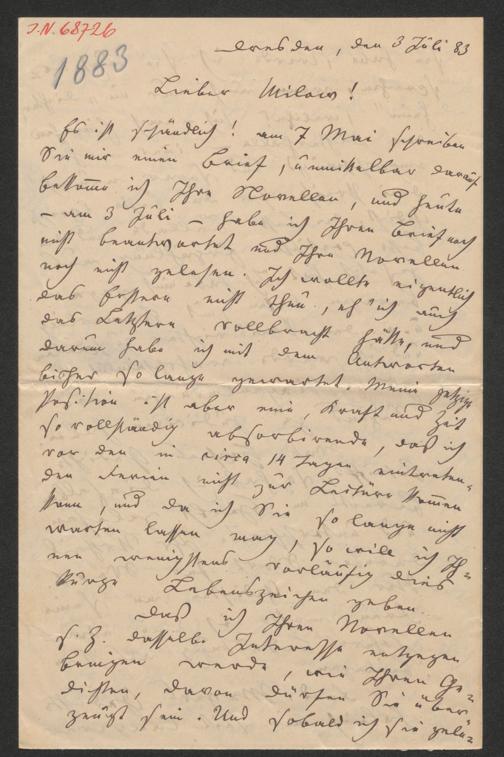 J.N. 68726
1883
Dresden, den 3 Juli 83
Lieber Milow!
Es ist schändlich! am 7 Mai schreiben
Sie mir einen Brief, unmittelbar darauf
bekomme ich Ihre Novellen, und heute
– am 3 Juli – habe ich Ihren Brief noch
nicht beantwortet und Ihre Novellen
noch nicht gelesen. Ich wollte eigentlich
das Erstere nicht thun, eh' ich auch
das Letztere vollbracht hätte, und
darum habe ich mit dem Antworten
bisher so lange gewartet. Meine jetzige
Position ist aber eine, Kraft und Zeit
so vollständig absorbirende, daß ich
vor den in circa 14 Tagen eintreten-
den Ferien nicht zur Lektüre kommen
kann, und da ich Sie so lange nicht
warten lassen mag, so will ich Ih-
nen wenigstens vorläufig dies
kurze Lebenszeichen geben.
Daß ich Ihren Novellen
s. Z. dasselbe Interesse entgegen
bringen werde, wie Ihren Ge-
dichten, davon dürfen Sie über-
zeugt sein. Und sobald ich sie gele-